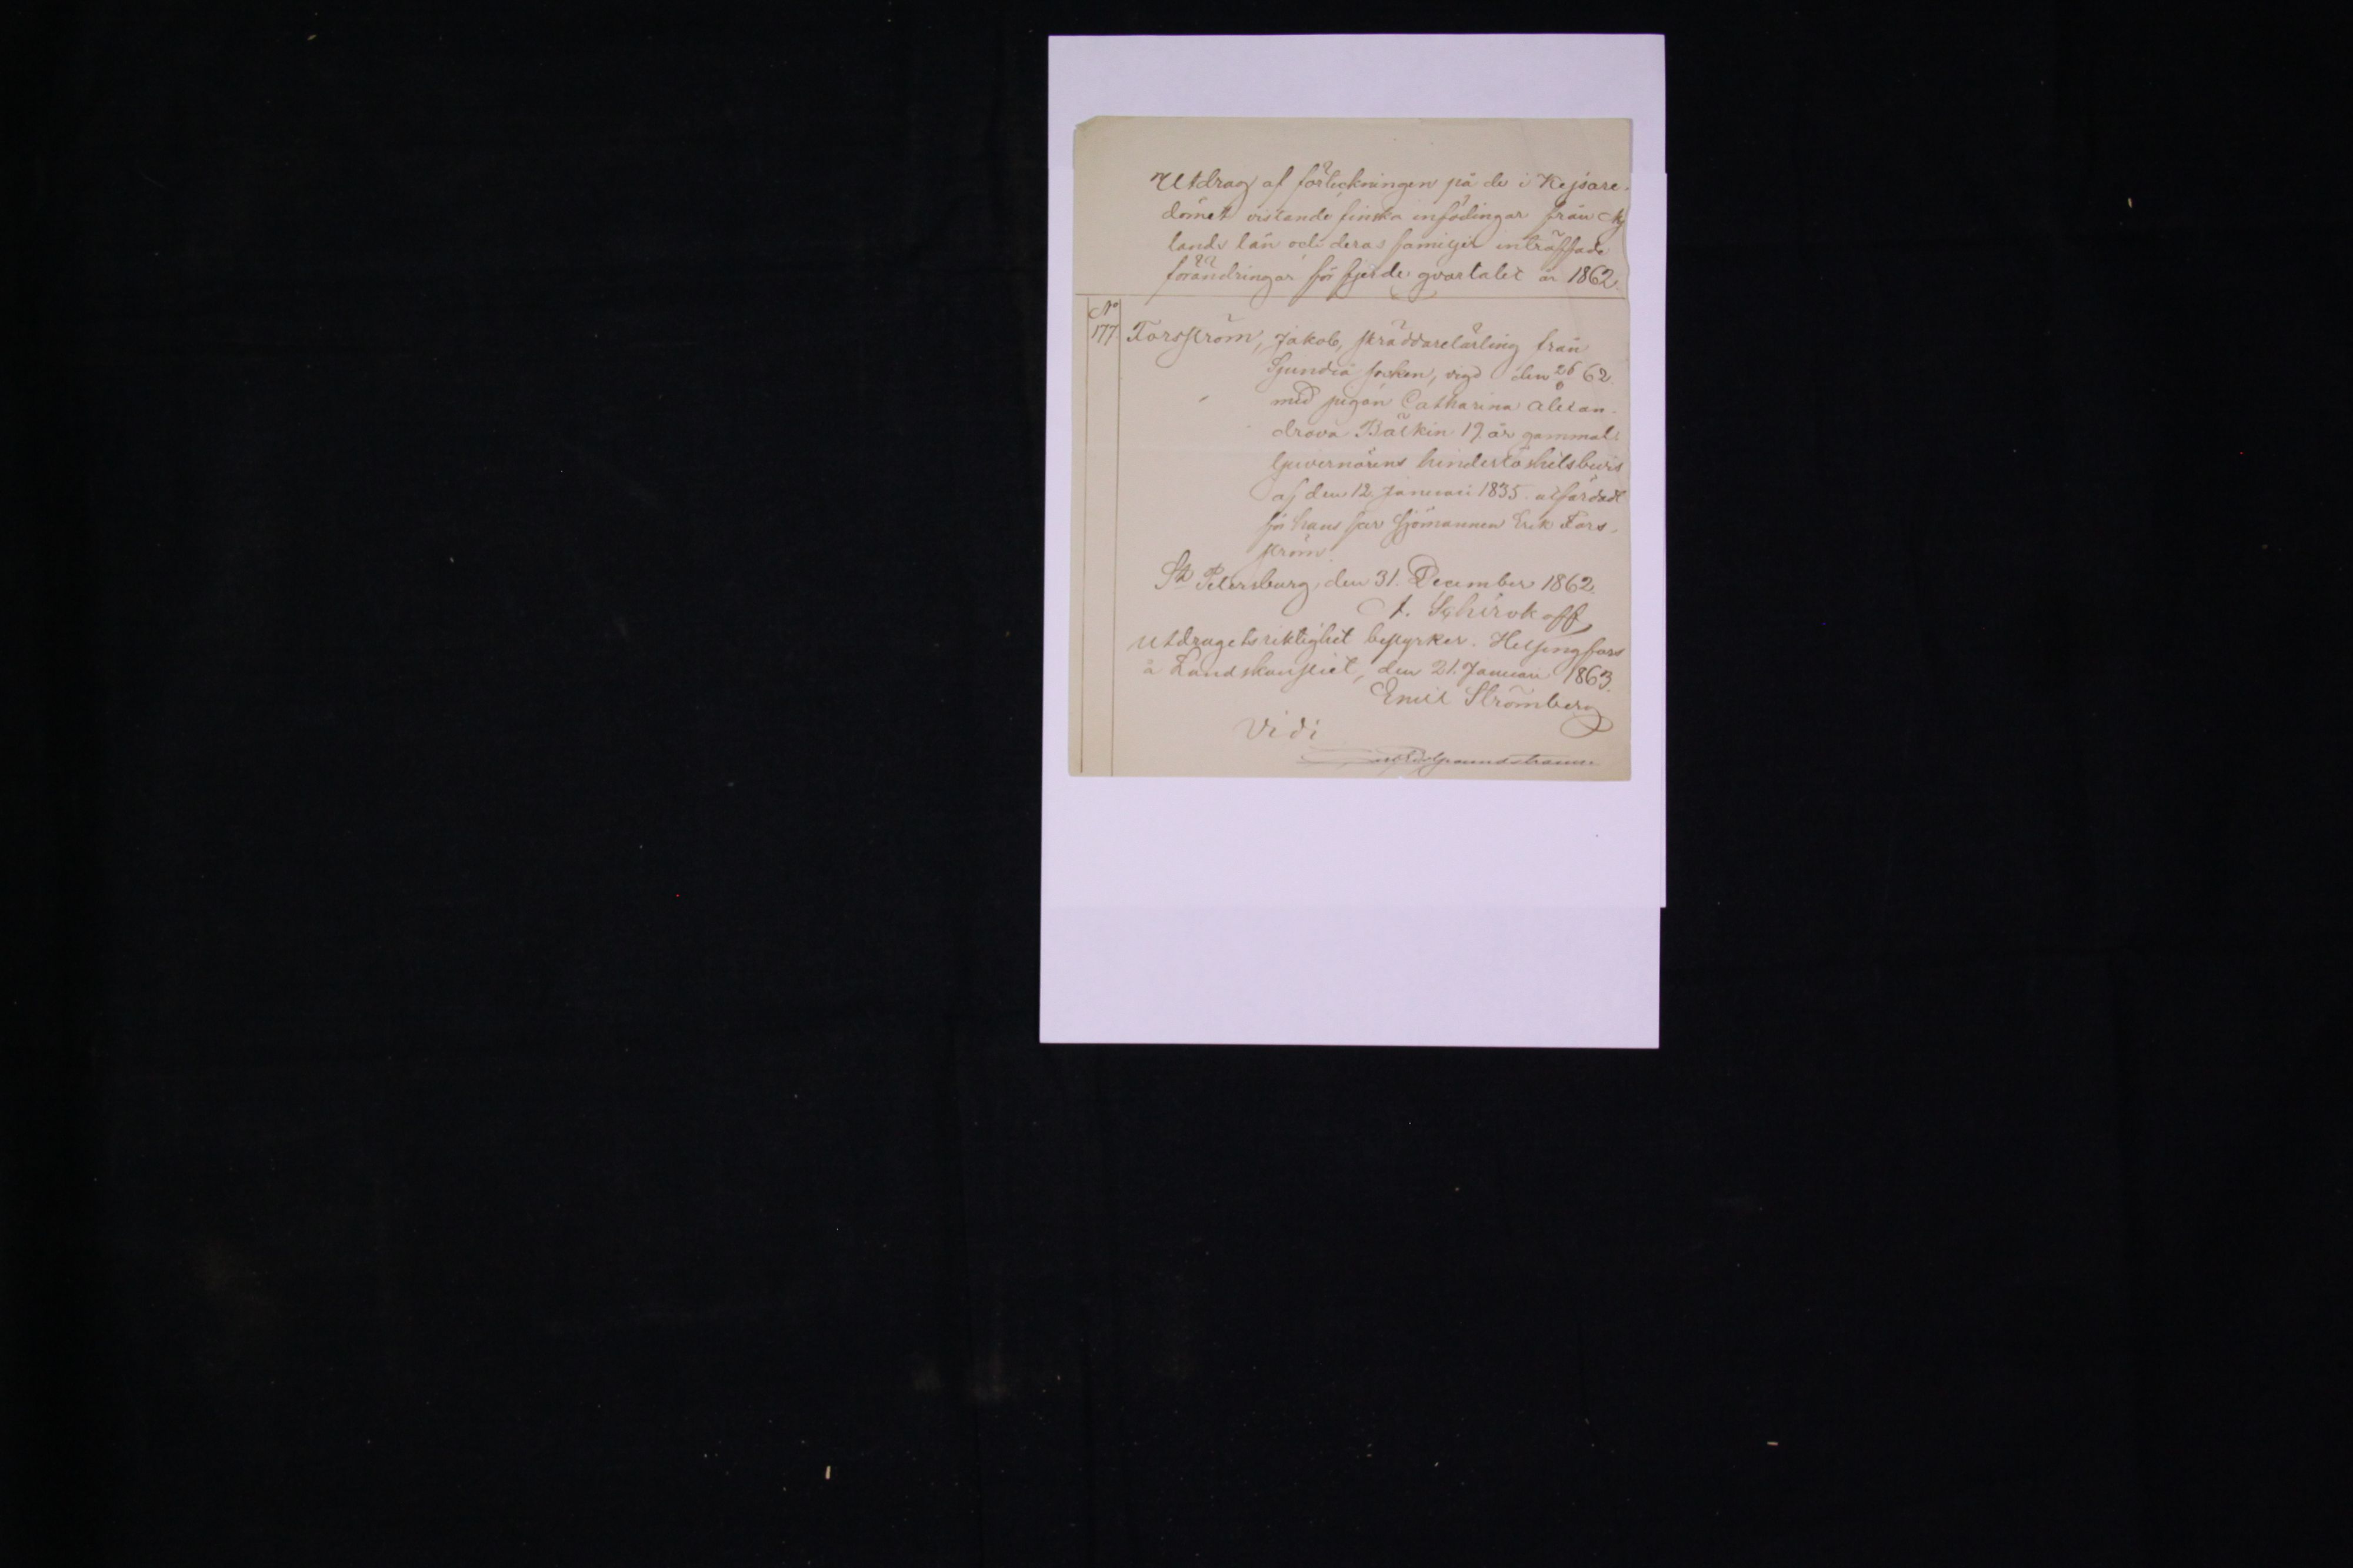 Utdrag af förteckningen på de i Kejsare-
dömet vistande finska infödingar från Ny
lands län och deras familjer inträffade
förändringar för fjerde qvartalet år 1862.
No
177. Forsström, Jakob, skräddarelärling från
Sjundeå socken, vigd den 26/6 62.
med pigan Catharina Alexan-
drova 19 år gammal.
Guvernörens hinderlöshetsbevis
af den 12 Januari 1835. utfärdadt
för hans far Sjömannen Erik Fors-
ström.
St Petersburg, den 31. December 1862.
Utdragets riktighet bestyrker. Helsingfors
å Landskansliet, den 21. Januari 1863.
Emil Strömberg
Vidi